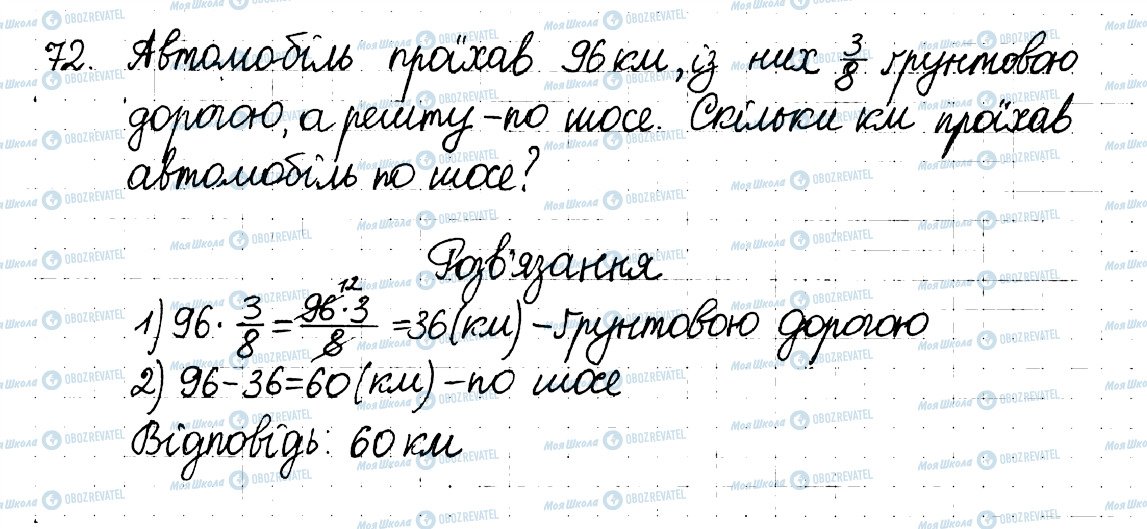 72. Автомобіль проїхав 96 км, із них 3/8 ґрунтовою
дорогою, а решту – по шосе. Скільки км проїхав
автомобіль по шосе?
Розв'язання
1) 96 · 3/8 = 96 · 3 / 8 = 36 (км) – ґрунтовою дорогою
12
2) 96 – 36 = 60 (км) – по шосе
Відповідь: 60 км
Моя Школа OBOZREVATEL